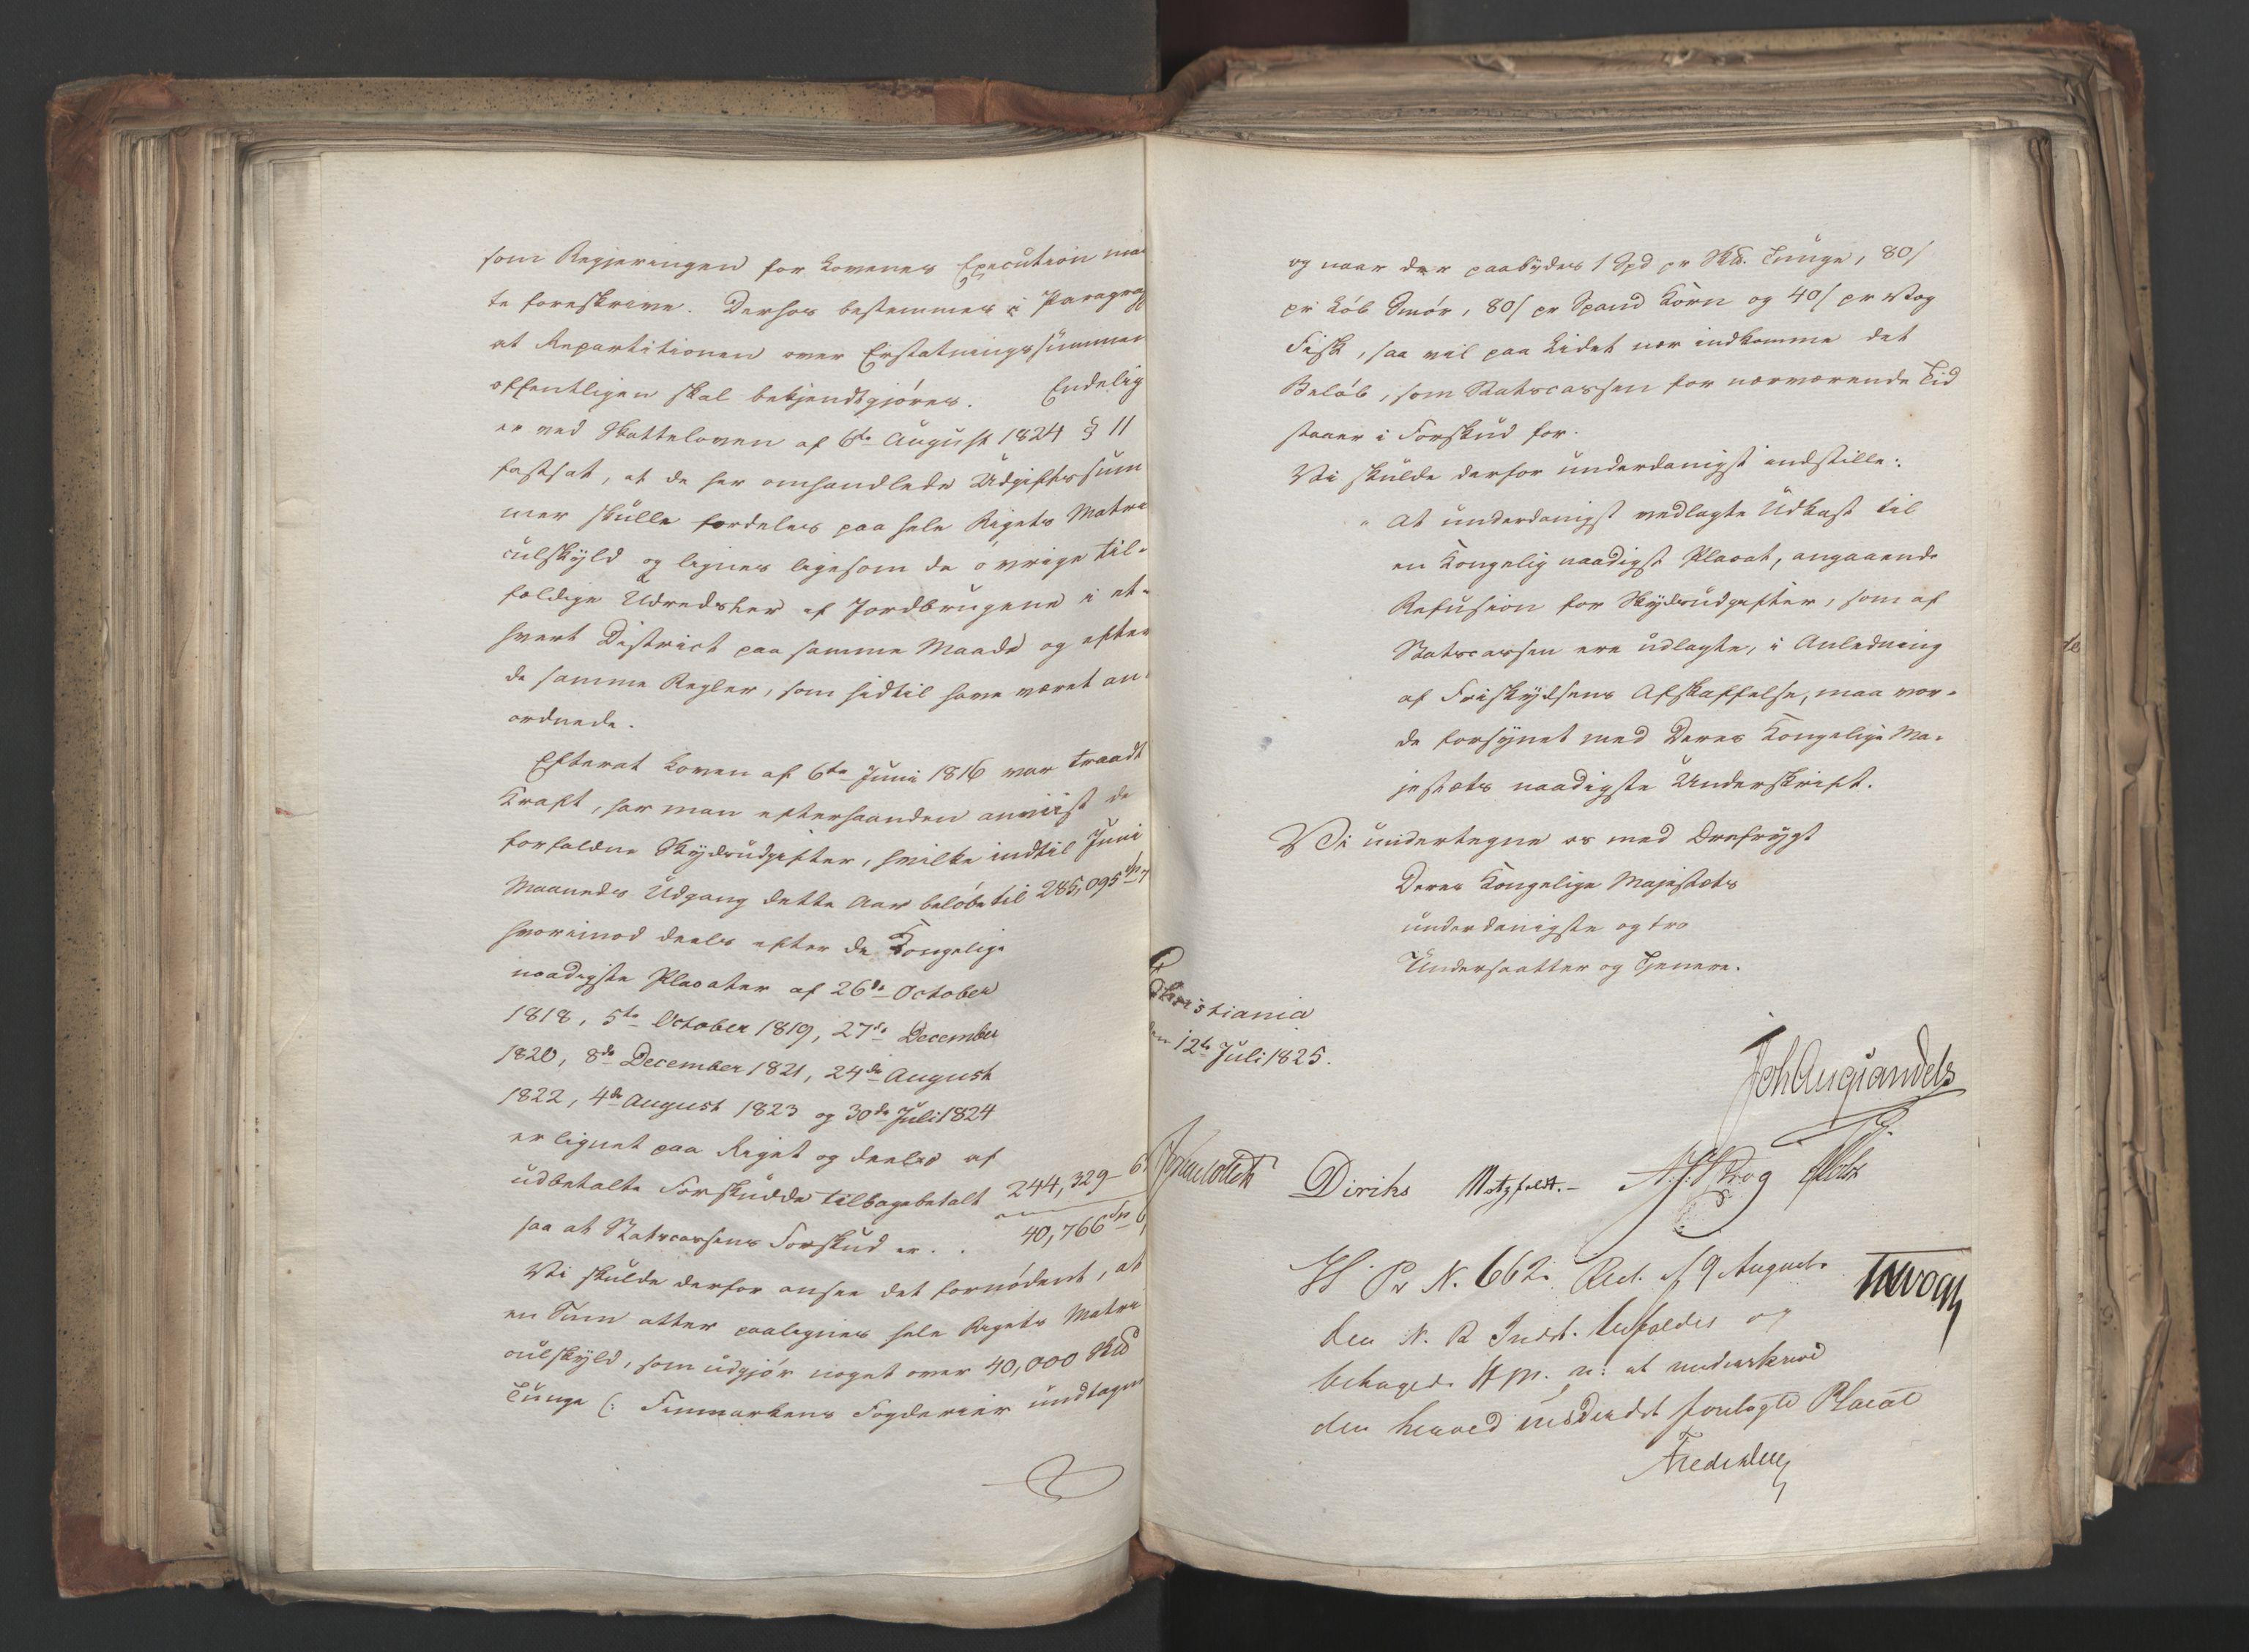 som Regjeringen for Lovenes Execution maa
te foreskrive. Derhos bestemmes i Paragrap
at Repartitionen over Erstatningssummen
offentligen skal bekjendtgjøres. Endelig
er ved Skatteloven af 6te August 1824 § 11
fastsat, at de her omhandlede Udgiftssum
mer skulle fordeles paa hele Rigets Matri
culskyld og lignes ligesom de øvrige til-
fældige Udredsler af Jordbrugene i et-
hvert District paa samme Maade og efter
de samme Regler, som hidtil have været an-
ordnede.
Efterat Loven af 6te Juni 1816 var traadt
Kraft, har man efterhaanden anviist de
forfaldne Skydsudgifter, hvilke indtil Juni
Maaneds Udgang dette Aar beløbe til 285,095 Sp 7
hvorimod deels efter de Kongelige
naadigste Placater af 26de October
1818, 5te October 1819, 27de December
1820, 8de December 1821, 24de August
1822, 4de August 1823 og 30de Juli 1824
er lignet paa Riget og deels af
udbetalte Forskudde tilbagebetalt 244,329- 6
saa at Statscassens Forskud er . . 40,766 Sp 6
Vi skulde derfor ansee det fornødent, at
en Sum atter paalignes hele Rigets Matri
culskyld, som udgjør noget over 40,000 Skd
Tunge (: Finmarkens Fogderier undtagen
og naar der paabydes 1 Spd pr Skd. Tunge, 80/
pr Løb Smør, 80/ pr Spand Korn og 40/ pr Vog
Fisk, saa vil paa Lidet nær indkomme det
Beløb, som Statscassen for nærværende Tid
staaer i Forskud for.
Vi skulde derfor underdanigst indstille:
" At underdanigst vedlagte Udkast til
en Kongelig naadigst Placat, angaaende
Refusion for Skydsudgifter, som af
Statscassen ere udlagte, i Anledning
af Friskydsens Afskaffelse, maa vor-
de forsynet med Deres Kongelige Ma-
jestæts naadigste Underskrift.
Vi undertegne os med Ærefrygt
Deres Kongelige Majestæts
underdanigste og tro
Undersaatter og Tjenere.
Christiania
den 12te Juli 1825.
Joh Aug Sandels
Diriks Motzfeldt. - Krog Holst
H. Pr N. 662. Res. af 9 August
Den N. R Indst. bifaldes og
behagede H M. n: at underskrive
den herved underdst forelagte Placat